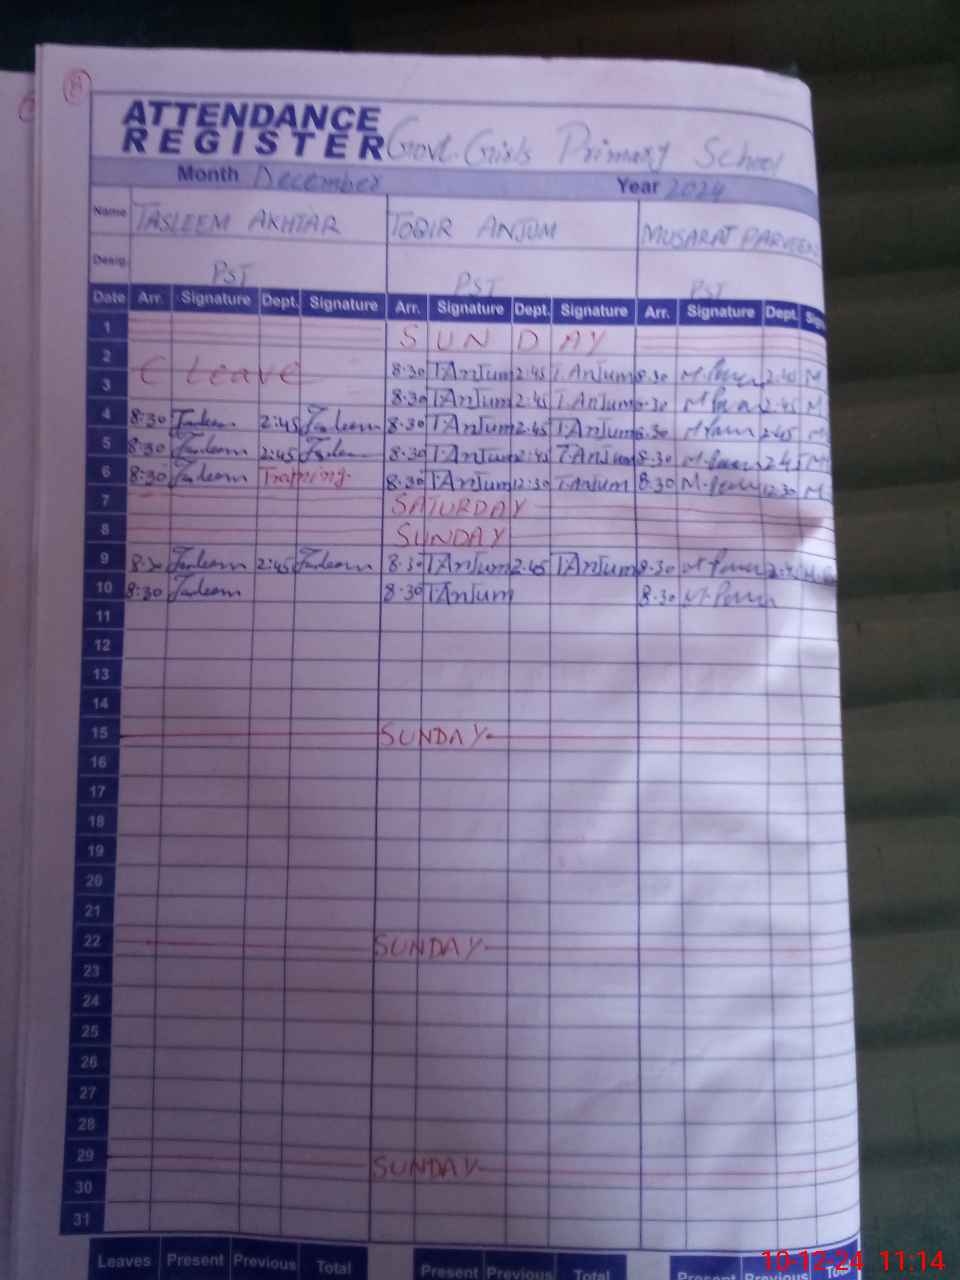 8
ATTENDANCE
REGISTER Govt. Girls Primary School
Month December Year 2024
Name TASLEEM AKHTAR TOQIR ANJUM MUSARAT PARVEEN
Desig. PST PST PST
Date Arr. Signature Dept. Signature Arr. Signature Dept. Signature Arr. Signature Dept.
1 SUNDAY
2 C Leave 8:30 T.Anjum 2:45 T.Anjum 8:30 2:45 M
3 8:30 T.Anjum 2:45 T.Anjum 8:30 2:45 M
4 8:30 Tasleem 2:45 Tasleem 8:30 T.Anjum 2:45 T.Anjum 8:30 2:45
5 8:30 Tasleem 2:45 Tasleem 8:30 T.Anjum 2:45 T.Anjum 8:30 2:45
6 8:30 Tasleem Training 8:30 T.Anjum 12:30 T.Anjum 8:30 12:30 M
7 SATURDAY
8 SUNDAY
9 8:30 Tasleem 2:45 Tasleem 8:30 T.Anjum 2:45 T.Anjum 8:30
10 8:30 Tasleem 8:30 T.Anjum 8:30
11
12
13
14
15 SUNDAY
16
17
18
19
20
21
22 SUNDAY
23
24
25
26
27
28
29 SUNDAY
30
31
Leaves Present Previous Total Present Previous Total Present Previous Total
10-12-24 11:14